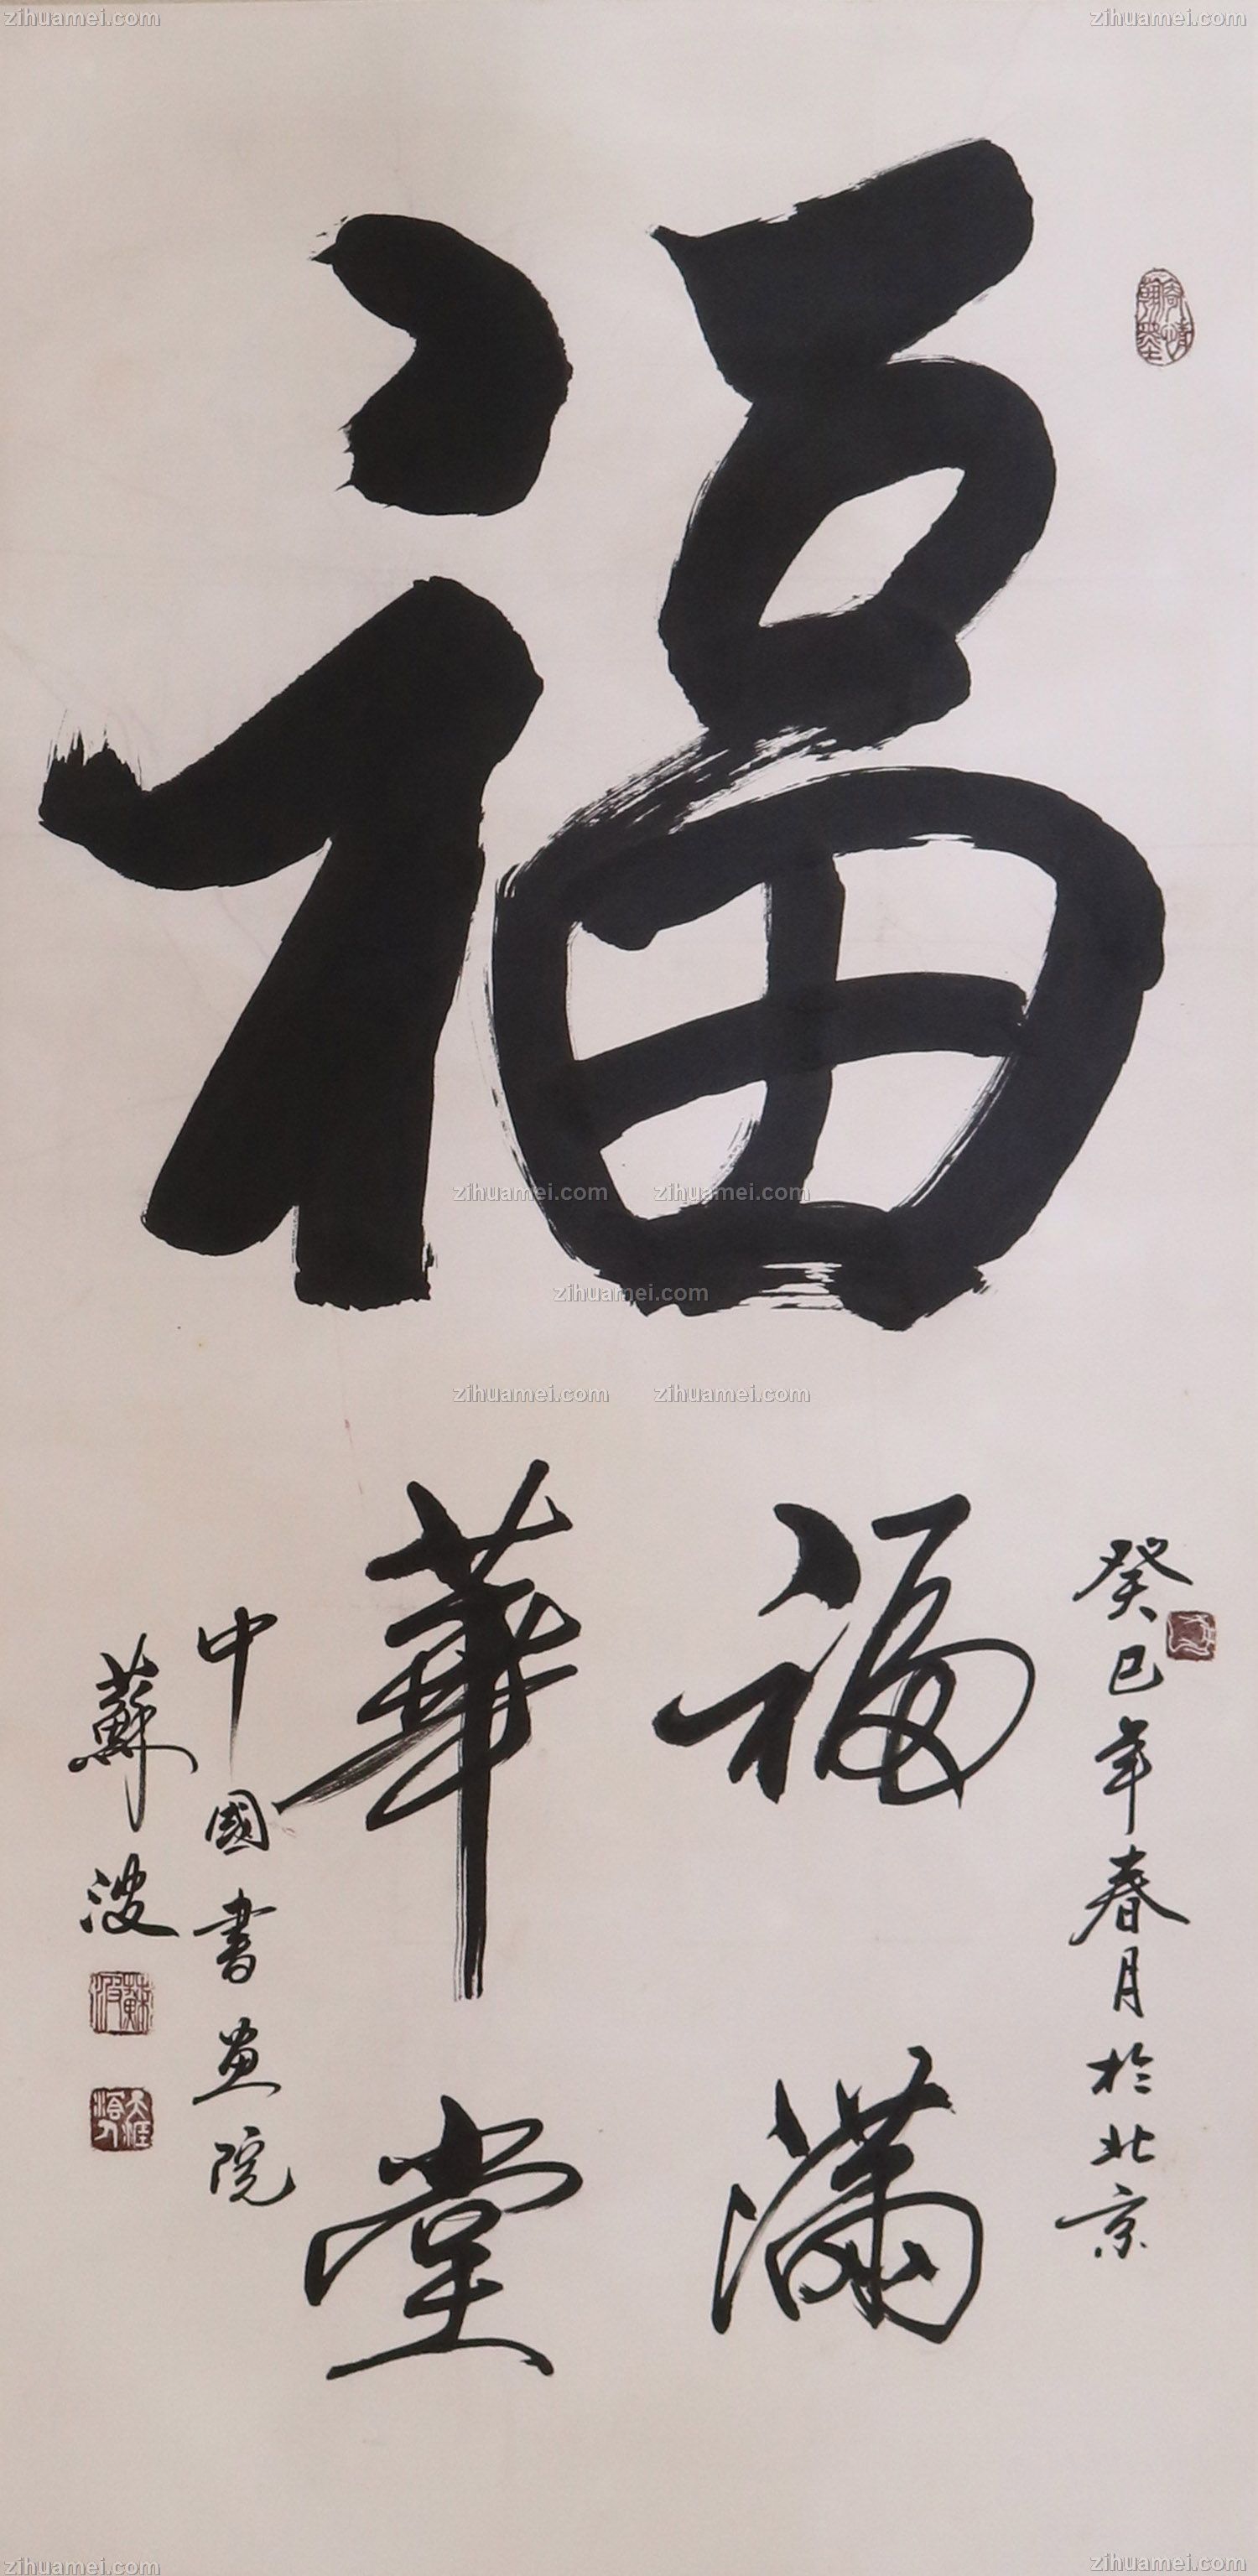 福
癸巳年春月於北京
福满
華堂
中國書画院
蘇波
蘇波
zihuamei.com
zihuamei.com
zihuamei.com
zihuamei.com
zihuamei.com
zihuamei.com
zihuamei.com
zihuamei.com
zihuamei.com